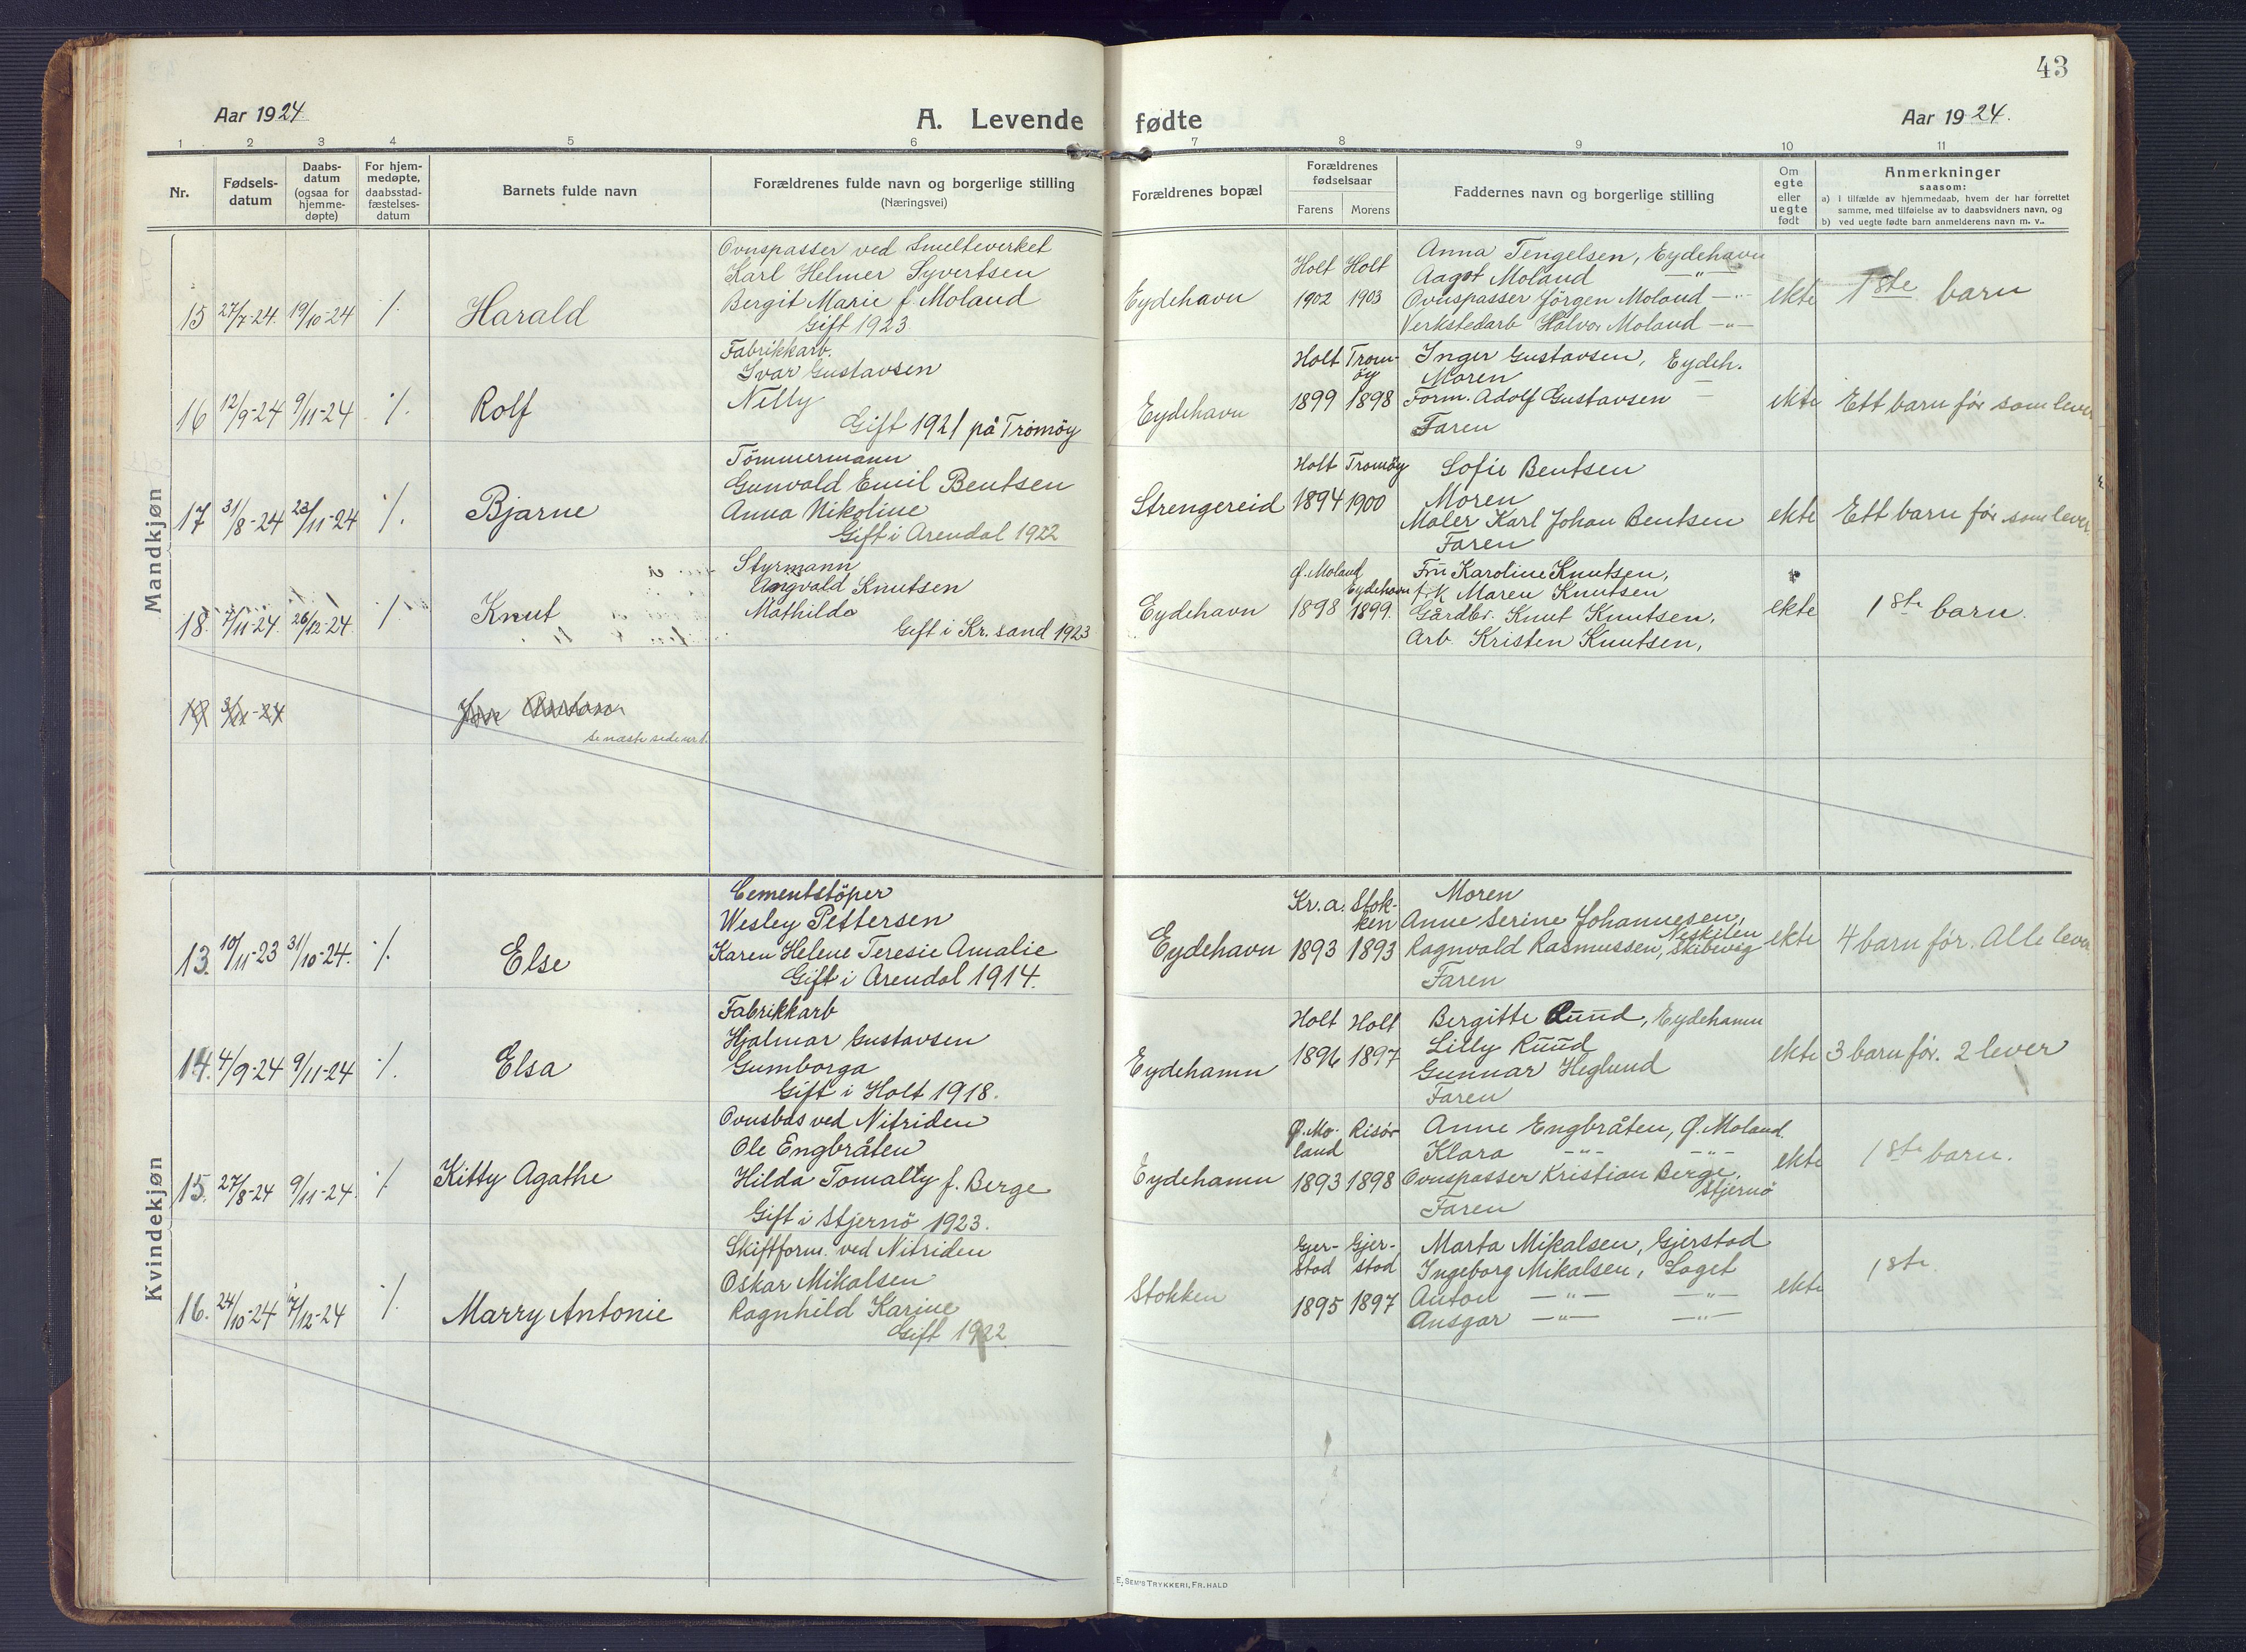 43
Aar 1924
A. Levende fødte
Aar 1924.
1 2 3 4 5 6 7 8 9 10 11
Nr.
Fødsels-
datum
Daabs-
datum
(ogsaa for
hjemme-
døpte)
For hjem-
medøpte,
daabsstad-
fæstelses-
datum
Barnets fulde navn
Forældrenes fulde navn og borgerlige stilling
(Næringsvei)
Forældrenes bopæl
Forældrenes
fødselsaar
Farens Morens
Faddernes navn og borgerlige stilling
Om
egte
eller
uegte
født
Anmerkninger
saasom:
a) I tilfælde av hjemmedaab, hvem der har forrettet
samme, med tilføielse av to daabsvidners navn, og
b) ved uegte fødte barn anmelderens navn m. v..
Mandkjøn
15 27/7-24. 19/10-24 ./. Harald
Ovnspasser ved Smelteverket
Karl Helmer Syvertsen
Bergit Marie f. Moland
Gift 1923
Eydehavn
Holt Holt
1902 1903
Anna Tengelsen, Eydehavn
Aagot Moland —"—
Ovnspasser Jörgen Moland —"—
Verkstedarb Halvor Moland —"—
ekte
1ste barn
16 12/9-24 9/11-24 ./. Rolf
Fabrikkarb.
Ivar Gustavsen
Nelly
Gift 1921 på Tromöy
Eydehavn
Holt Trom-
öy
1899 1898
Inger Gustavsen, Eydeh.
Moren —
Form. Adolf Gustavsen —
Faren
ekte
Ett barn før som lever
17 31/8-24 23/11-24 ./. Bjarne
Tömmermann
Gunvald Emil Bentsen
Anna Nikoline
Gift i Arendal 1922
Strengereid
Holt Tromöy
1894 1900
Sofie Bentsen
Moren
Maler Karl Johan Bentsen
Faren
ekte
Ett barn før som lever
18. 7/11-24 26/12-24 ./. Knut
Styrmann
Angvald Knutsen
Mathilda
Gift i Kr. sand 1923
Eydehavn
Ø. Moland Eydehavn
1898 1899.
Fru Karoline Knutsen,
frk Maren Knutsen
Gårdbr. Knut Knutsen,
Arb. Kristen Knutsen,
ekte
1ste barn.
19 3/11-24
se næste side nr 1.
Kvindekjøn
13. 10/11-23 31/10-24. ./. Else
Cementstöper
Wesley Pettersen
Karen Helene Teresie Amalie
Gift i Arendal 1914.
Eydehavn
Kr.a. Stok-
ken
1893 1893
Moren
Anne Serine Johannesen,
Neskilen
Ragnvald Rasmussen, Skibvig
Faren
ekte
4 barn før. Alle lever
14. 4/9-24 9/11-24 ./. Elsa
Fabrikkarb
Hjalmar Gustavsen
Gumborga
Gift i Holt 1918.
Eydehamn
Holt Holt
1896 1897
Bergitte Ruud, Eydehamn
Lilly Ruud
Gunnar Heglund
Faren
ekte
3 barn før. 2 lever
15. 27/8-24 9/11-24. ./. Kitty Agathe
Ovnsbas ved Nitriden
Ole Engbråten
Hilda Tomalty f. Berge
Gift i Stjernö 1923.
Eydehamn
Ø. Mo- Risør
land
1893 1898
Anne Engbråten, Ø. Moland.
Klara —"— —"—
Ovnspasser Kristian Berge,
Stjernö
Faren
ekte
1ste barn.
16. 24/10-24 7/12-24 ./. Marry Antonie
Skiftform. ved Nitriden
Oskar Mikalsen
Ragnhild Karine
Gift 1922.
Stokken
Gjer- Gjer-
stad stad
1895 1897
Marta Mikalsen, Gjerstad
Ingeborg Mikalsen, Laget
Anton —"— —"—
Ansgar —"— —"—
ekte
1ste.
E. SEM'S TRYKKERI, FR.HALD